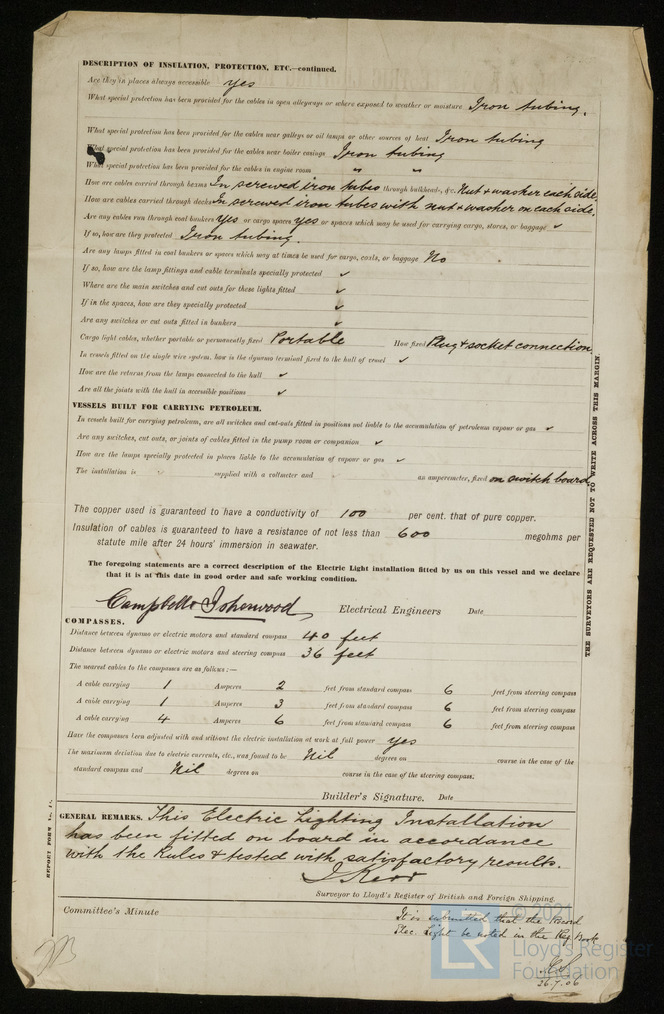 DESCRIPTION OF INSULATION, PROTECTION, ETC.—continued.
Are they in places always accessible yes
What special protection has been provided for the cables in open alleyways or where exposed to weather or moisture Iron tubing.
What special protection has been provided for the cables near galleys or oil lamps or other sources of heat Iron tubing
What special protection has been provided for the cables near boiler casings Iron tubing
What special protection has been provided for the cables in engine room " "
How are cables carried through beams In screwed iron tubes through bulkheads, &c. Nut & washer each side.
How are cables carried through decks In screwed iron tubes with nut & washer on each side.
Are any cables run through coal bunkers Yes or cargo spaces yes or spaces which may be used for carrying cargo, stores, or baggage ✓
If so, how are they protected Iron tubing.
Are any lamps fitted in coal bunkers or spaces which may at times be used for cargo, coals, or baggage No
If so, how are the lamp fittings and cable terminals specially protected ✓
Where are the main switches and cut outs for these lights fitted ✓
If in the spaces, how are they specially protected ✓
Are any switches or cut outs fitted in bunkers ✓
Cargo light cables, whether portable or permanently fixed Portable How fixed Plug & socket connection
In vessels fitted on the single wire system, how is the dynamo terminal fixed to the hull of vessel ✓
How are the returns from the lamps connected to the hull ✓
Are all the joints with the hull in accessible positions ✓
VESSELS BUILT FOR CARRYING PETROLEUM.
In vessels built for carrying petroleum, are all switches and cut-outs fitted in positions not liable to the accumulation of petroleum vapour or gas ✓
Are any switches, cut outs, or joints of cables fitted in the pump room or companion ✓
How are the lamps specially protected in places liable to the accumulation of vapour or gas ✓
The installation is supplied with a voltmeter and an amperemeter, fixed on switch board
The copper used is guaranteed to have a conductivity of 100 per cent. that of pure copper.
Insulation of cables is guaranteed to have a resistance of not less than 600 megohms per
statute mile after 24 hours' immersion in seawater.
The foregoing statements are a correct description of the Electric Light installation fitted by us on this vessel and we declare
that it is at this date in good order and safe working condition.
Campbell & Isherwood Electrical Engineers Date
COMPASSES.
Distance between dynamo or electric motors and standard compass 40 feet
Distance between dynamo or electric motors and steering compass 36 feet
The nearest cables to the compasses are as follows:—
A cable carrying 1 Amperes 2 feet from standard compass 6 feet from steering compass
A cable carrying 1 Amperes 3 feet from standard compass 6 feet from steering compass
A cable carrying 4 Amperes 6 feet from standard compass 6 feet from steering compass
Have the compasses been adjusted with and without the electric installation at work at full power yes
The maximum deviation due to electric currents, etc., was found to be Nil degrees on course in the case of the
standard compass and Nil degrees on course in the case of the steering compass.
Builder's Signature. Date
GENERAL REMARKS. This Electric Lighting Installation
has been fitted on board in accordance
with the Rules & tested with satisfactory results.
Surveyor to Lloyd's Register of British and Foreign Shipping.
Committee's Minute
It is submitted that the Record
Elec. Light be noted in the Reg. Book
26.7.06
THE SURVEYORS ARE REQUESTED NOT TO WRITE ACROSS THIS MARGIN.
© 2021
LR
Lloyd's Register
Foundation